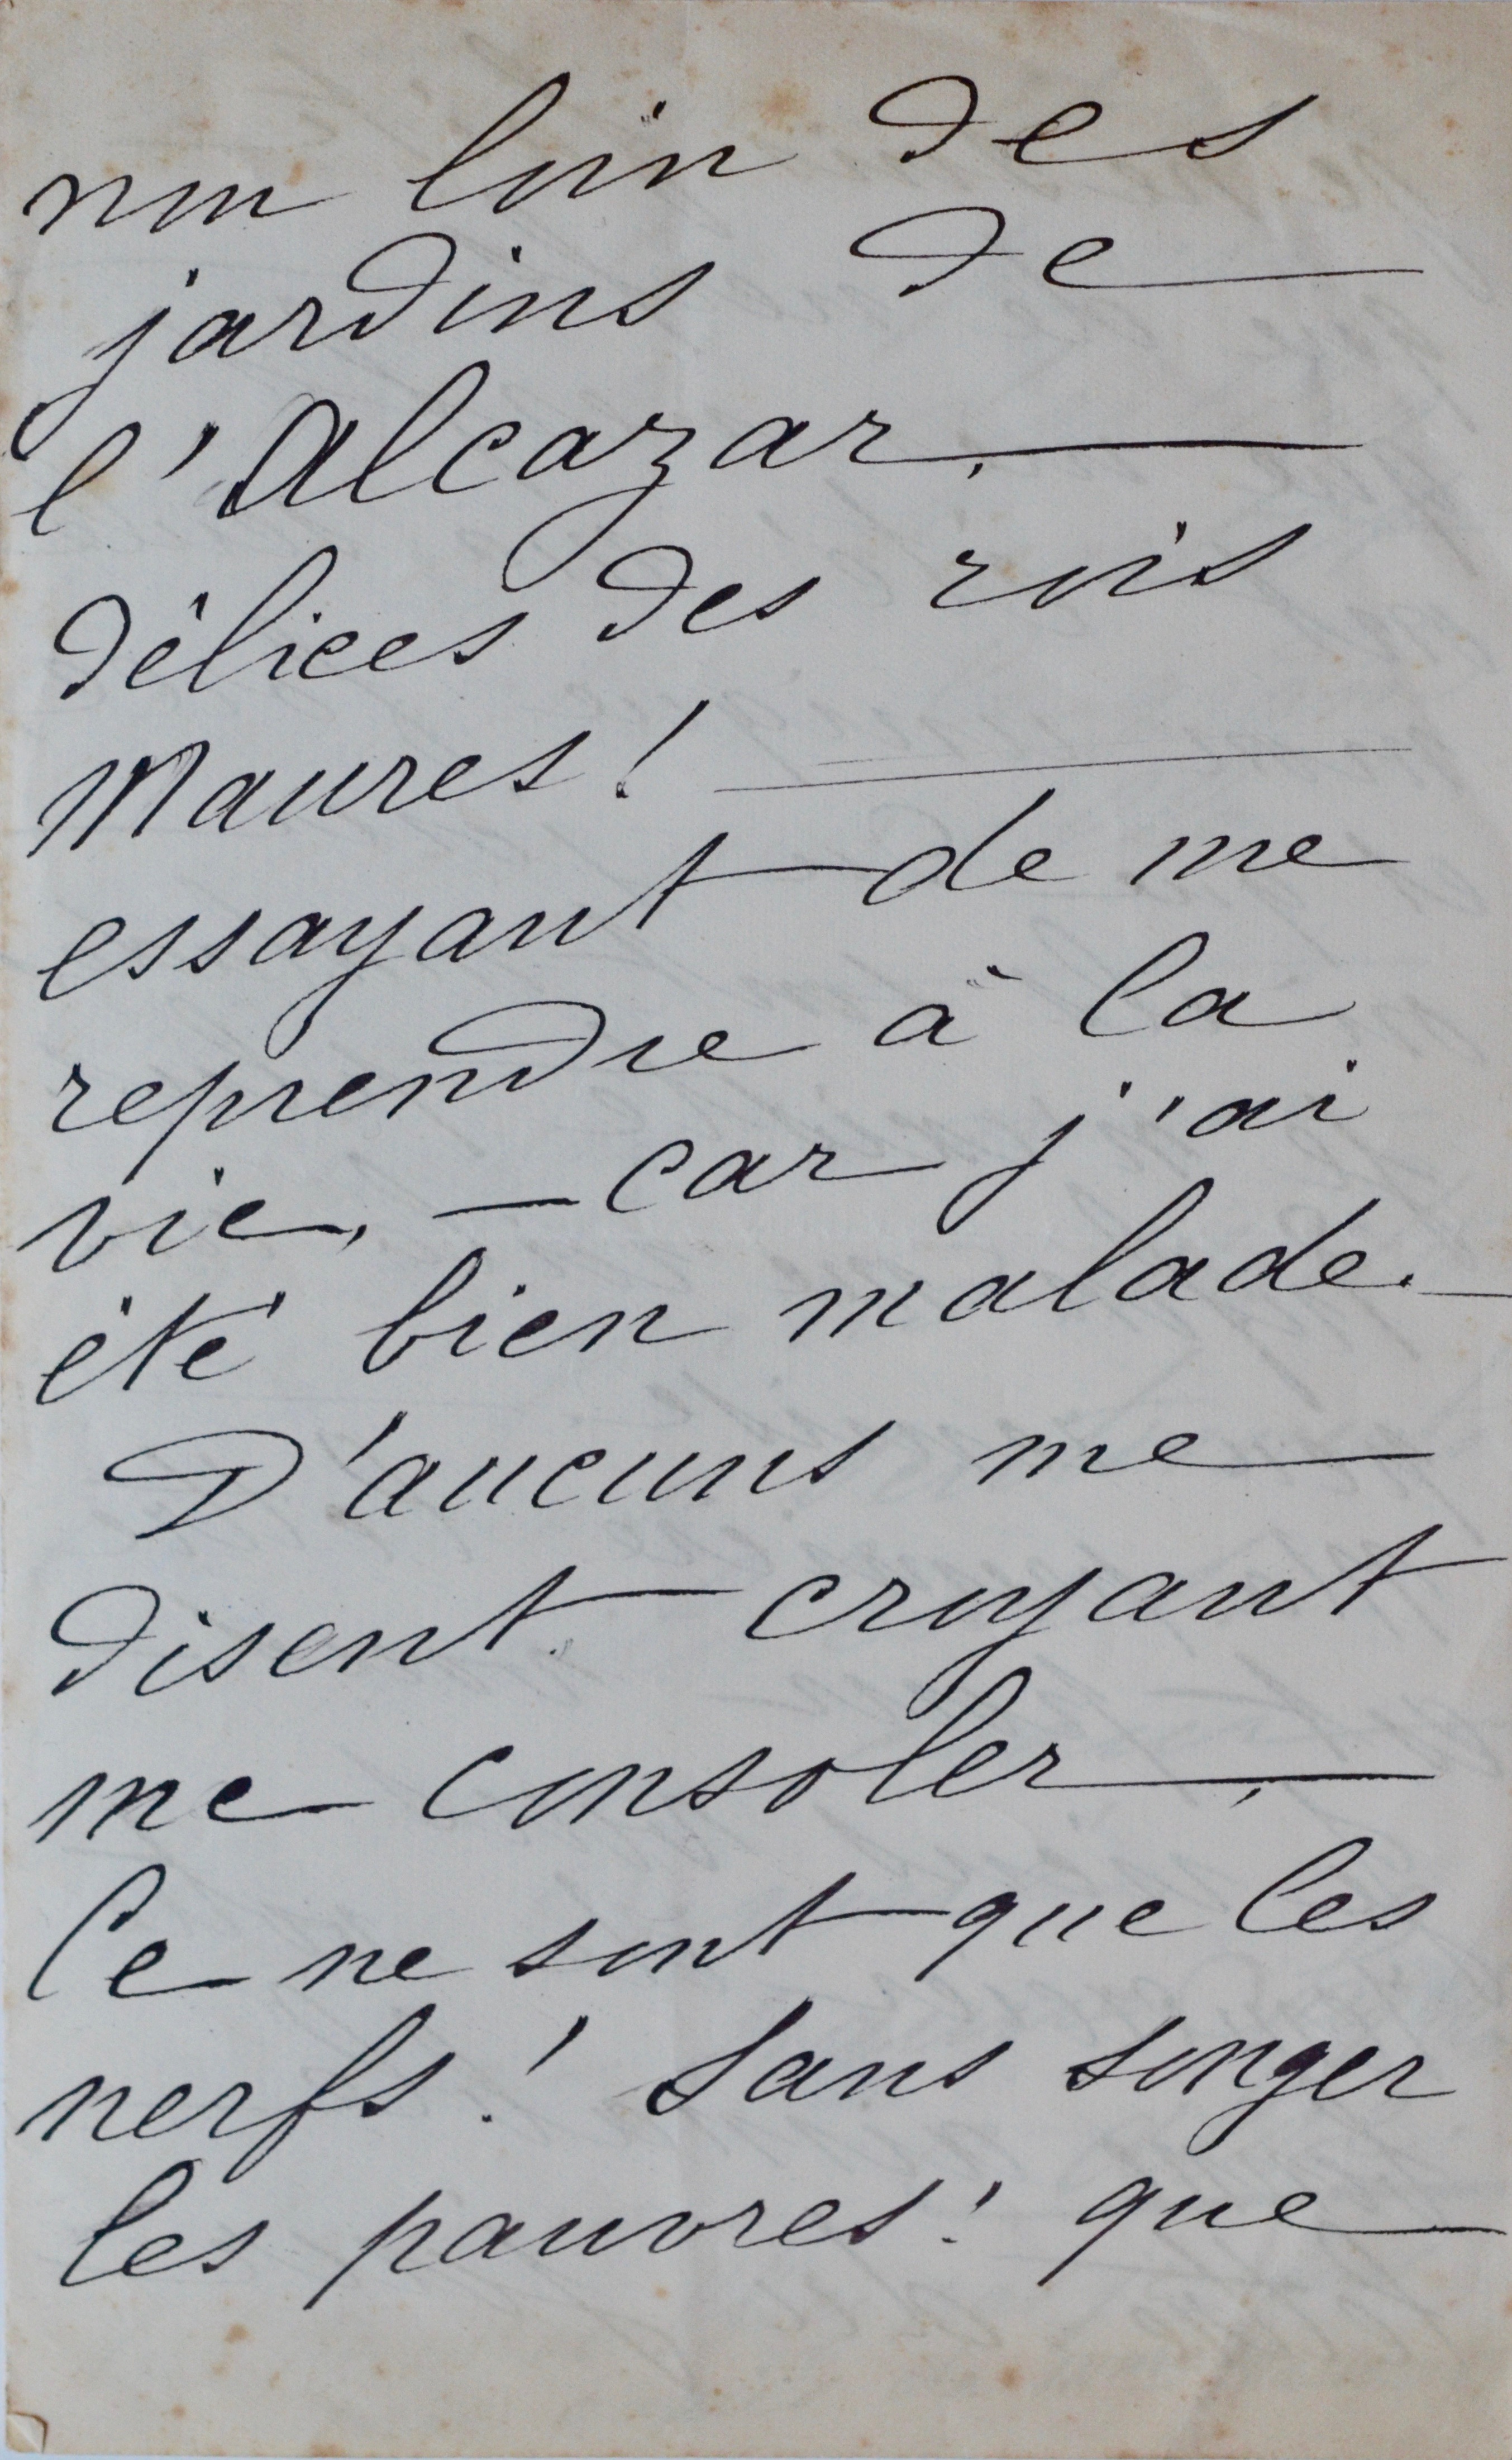 non loin des
jardins de
l'Alcazar, —
délices des rois
Maures ! —
essayant de me
reprendre à la
vie, — car j'ai
été bien malade. —
D'aucuns me
disent croyant
me consoler, —
Ce ne sont que les
nerfs ! Sans songer
les pauvres ! que